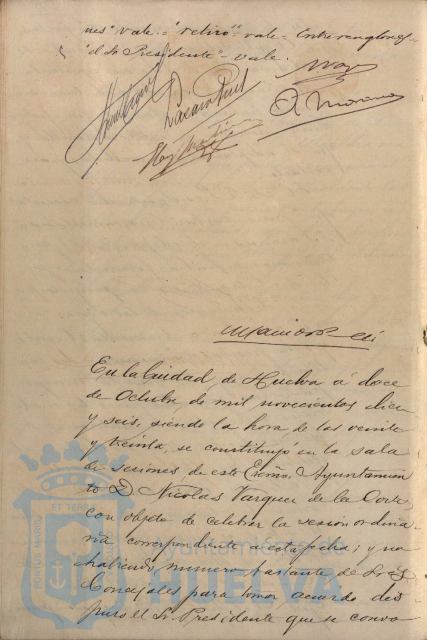 nes" vale = "retiró" - vale - Entrerenglones -
"el Sr Presidente" - vale.
Lázaro Puil
A. Moreno
En la Ciudad de Huelva á doce
de Octubre de mil novecientos diez
y seis, siendo la hora de las veinte
y treinta, se constituyó en la sala
de sesiones de este Excmo. Ayuntamien
to D. Nicolas Vazquez de la Corte
con objeto de celebrar la sesion ordina
ria correspondiente a esta fecha; y no
habiendo número bastante de Sres
Concejales para tomar acuerdo dis
puso el Sr. Presidente que se convo
Ayuntamiento de
HUELVA
PORTUS MARIS
ET TERRAE